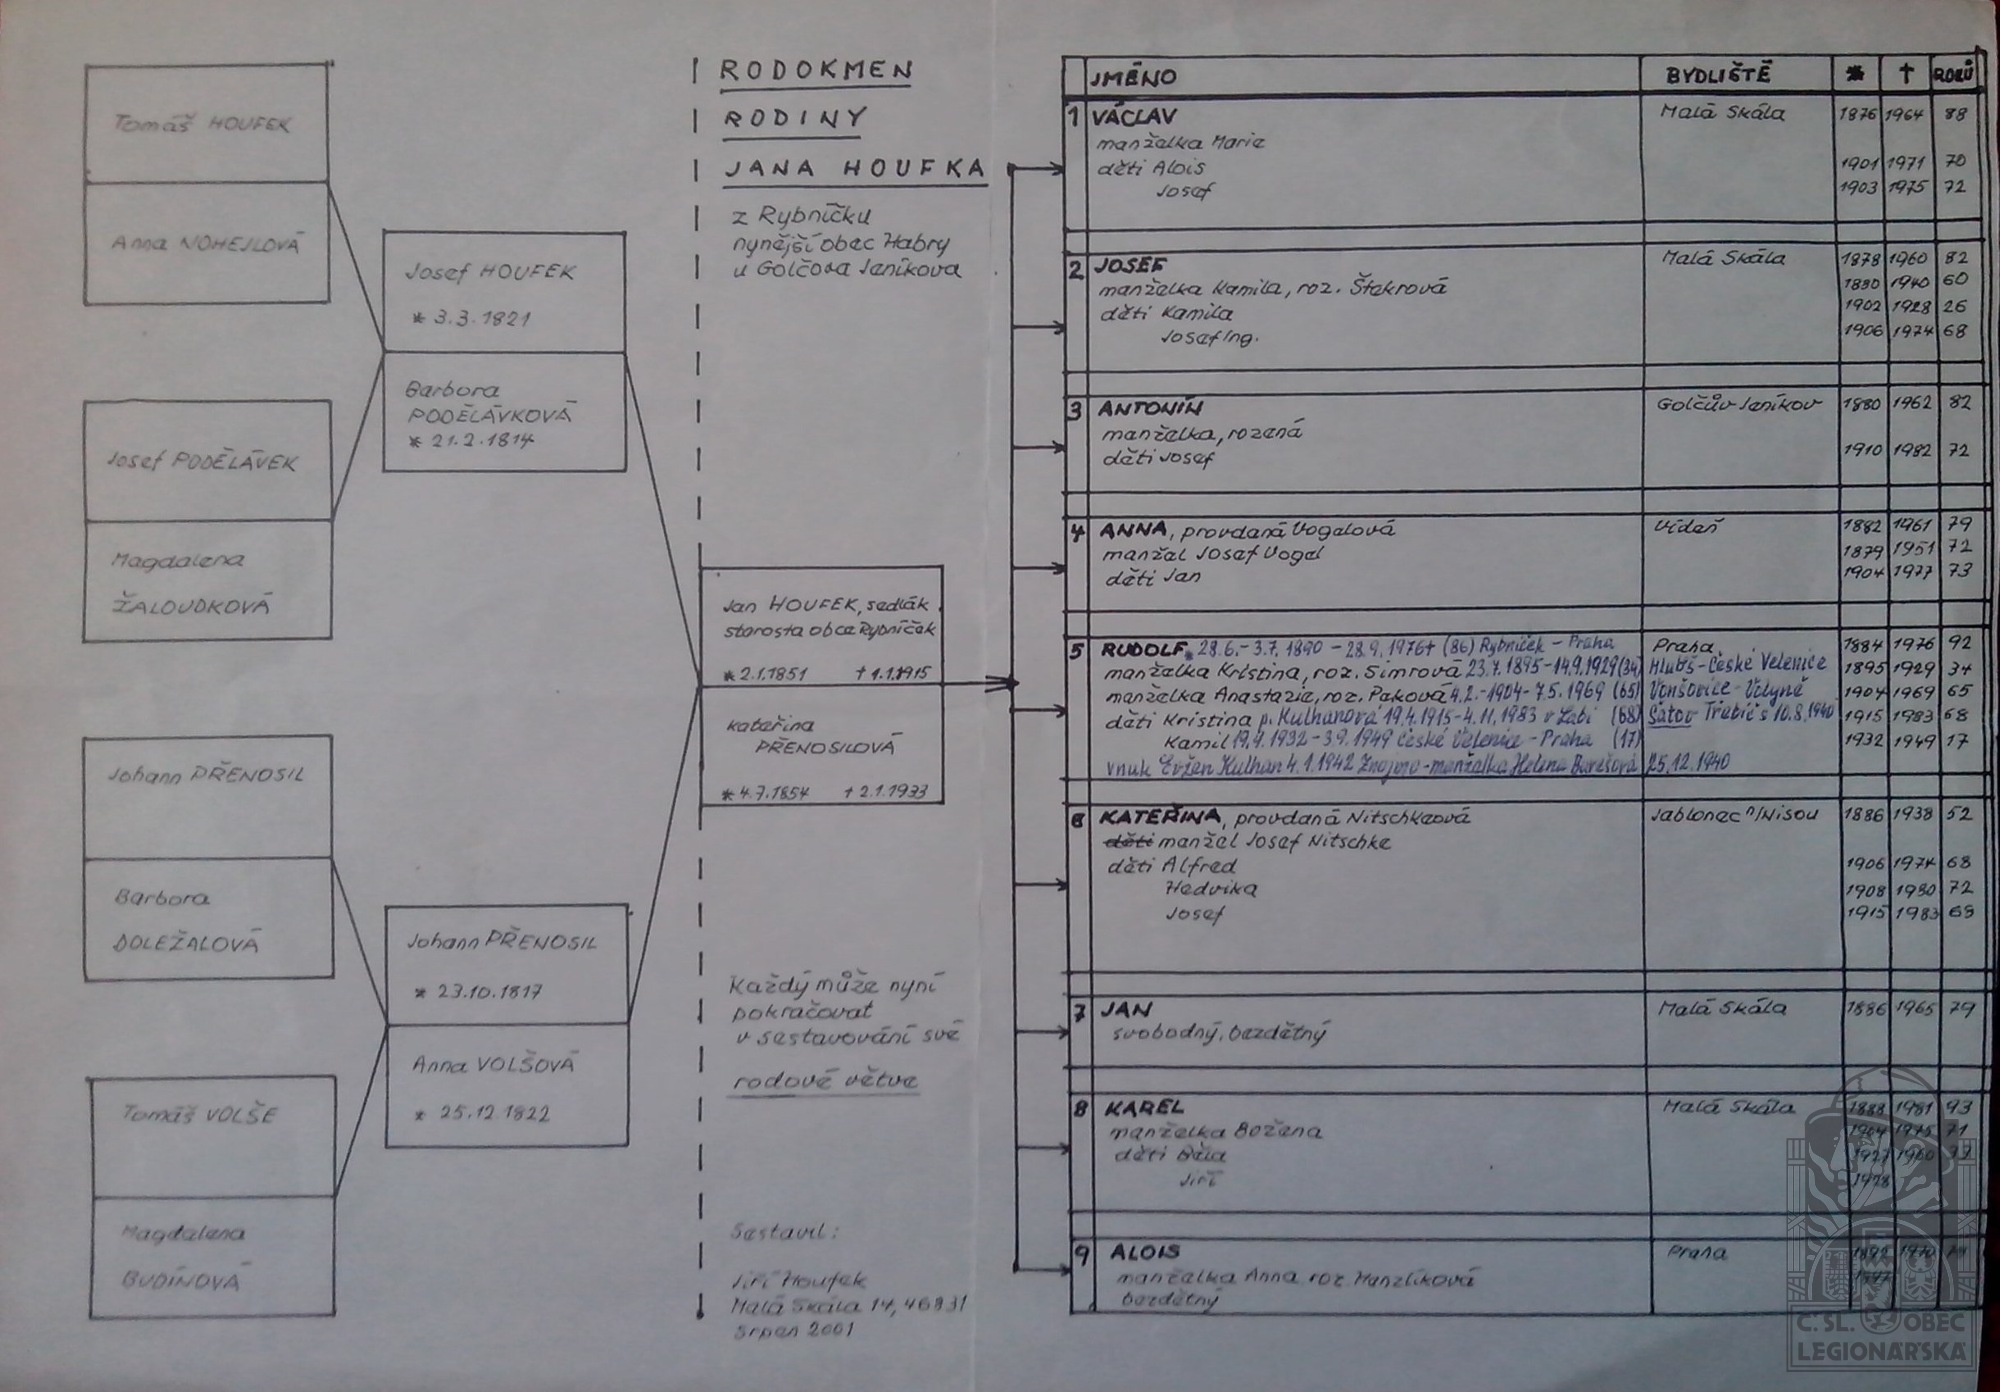 Tomáš HOUFEK
Anna NOHEJLOVÁ
Josef PODĚLÁVEK
Magdalena
ŽALOUDKOVÁ
Johann PŘENOSIL
Barbora
DOLEŽALOVÁ
Tomáš VOLŠE
Magdalena
BUDÍNOVÁ
Josef HOUFEK
* 3.3.1821
Barbora
PODĚLÁVKOVÁ
* 21.2.1814
Johann PŘENOSIL
* 23.10.1817
Anna VOLŠOVÁ
* 25.12.1822
RODOKMEN
RODINY
JANA HOUFKA
z Rybníčku
nynější obec Habry
u Golčova Jeníkova
Jan HOUFEK, sedlák
starosta obce Rybníček
* 2.1.1851 † 1.1.1915
Kateřina
PŘENOSILOVÁ
* 4.7.1854 † 2.1.1933
Každý může nyní
pokračovat
v sestavování své
rodové větve
Sestavil:
Jiří Houfek
Malá Skála 14, 46831
Srpen 2001
JMÉNO BYDLIŠTĚ * † ROKŮ
1 VÁCLAV Malá Skála 1876 1964 88
manželka Marie
děti Alois 1901 1971 70
Josef 1903 1975 72
2 JOSEF Malá Skála 1878 1960 82
manželka Kamila, roz. Štekrová 1880 1940 60
děti Kamila 1902 1928 26
Josef Ing. 1906 1974 68
3 ANTONÍN Golčův Jeníkov 1880 1962 82
manželka, rozená
děti Josef 1910 1982 72
4 ANNA, provdaná Vogelová Vídeň 1882 1961 79
manžel Josef Vogel 1879 1951 72
děti Jan 1904 1977 73
5 RUDOLF * 28.6.-3.7.1890 - 28.9.1976† (86) Rybníček - Praha Praha 1884 1976 92
manželka Kristina, roz. Šimrová 23.7.1895-14.9.1929 (34) Hlubš-České Velenice 1895 1929 34
manželka Anastazie, roz. Paková 4.2.-1904-7.5.1969 (65) Vonšovice-Volyně 1904 1969 65
děti Kristina p. Kulhanová 19.4.1915-4.11.1983 v Labi (68) Šatov Třebíč s 10.8.1940 1915 1983 68
Kamil 19.9.1932-3.9.1949 České Velenice - Praha (17) 1932 1949 17
vnuk Evžen Kulhan 4.1.1942 Znojmo - manželka Helena Burešová 25.12.1940
6 KATEŘINA, provdaná Nitschkeová Jablonec n/Nisou 1886 1938 52
děti manžel Josef Nitschke
děti Alfred 1906 1974 68
Hedvika 1908 1980 72
Josef 1915 1983 69
7 JAN Malá Skála 1886 1965 79
svobodný, bezdětný
8 KAREL Malá Skála 1888 1981 93
manželka Božena 1904 1975 71
děti Běla 1927 1960 33
Jiří 1928
9 ALOIS Praha 1892 1970
manželka Anna roz. Manzlíková
bezdětný
Č. SL. OBEC
LEGIONÁŘSKÁ